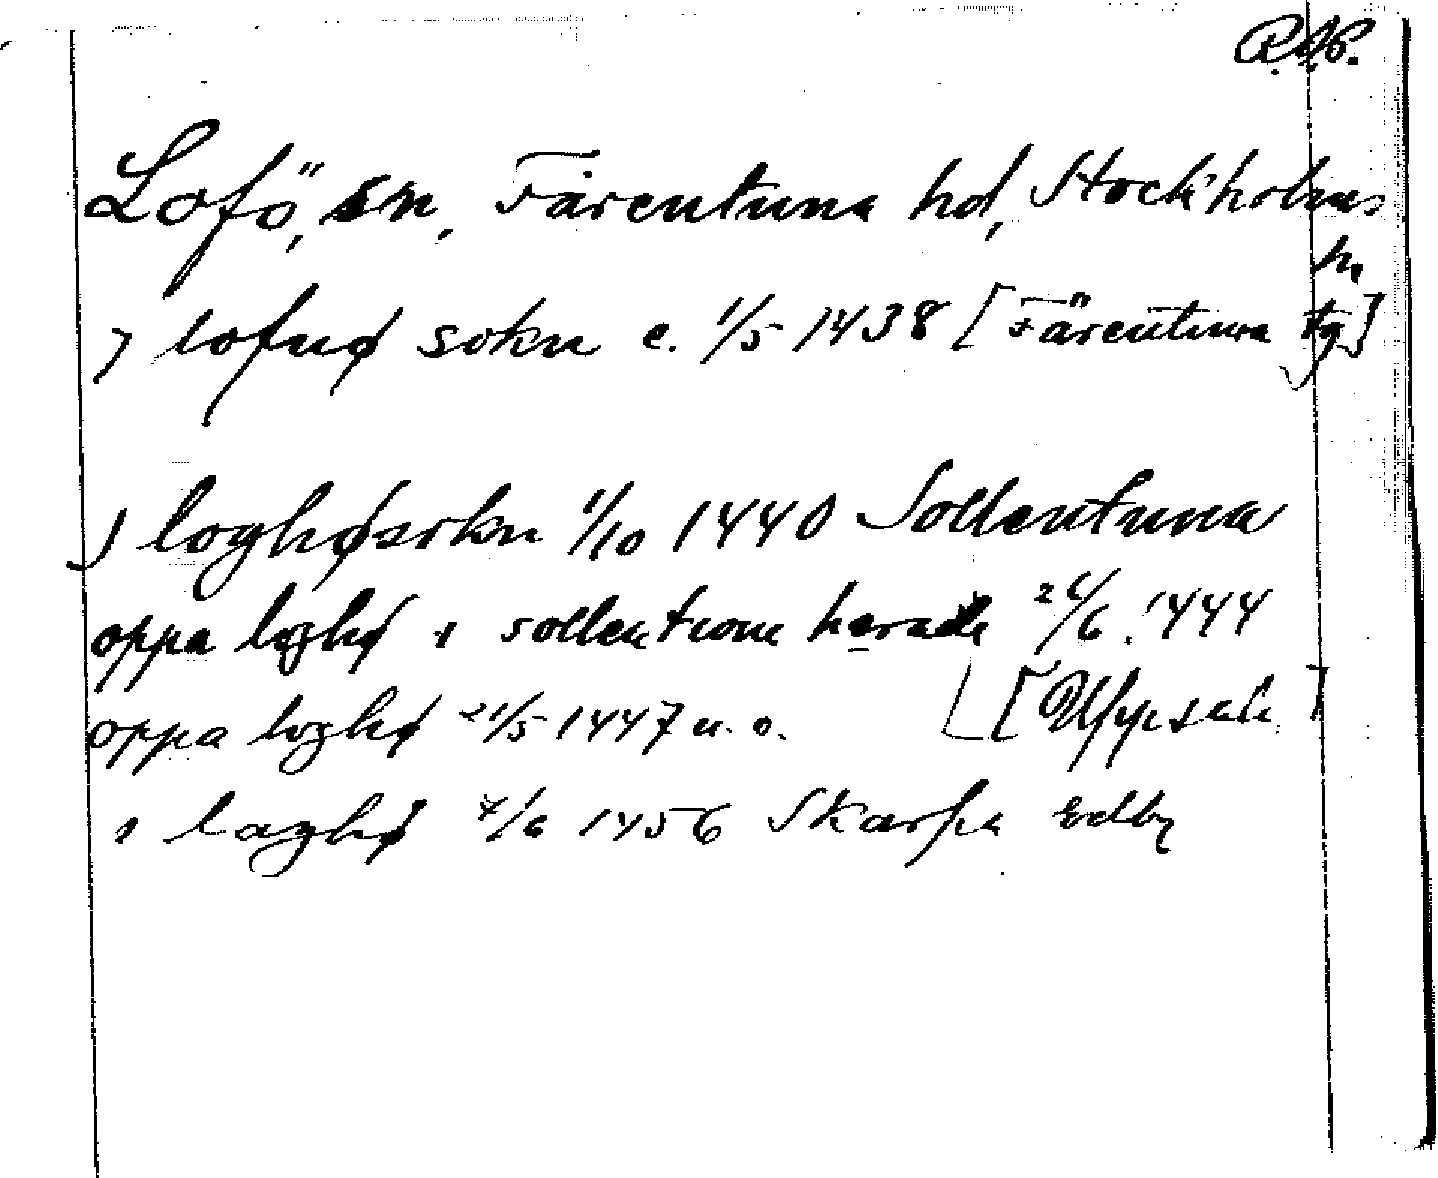 R.A.P.
Lofö, sn, Färentuna hd, Stockholms
l.
j lofuø sokn e. 1/5 1438 [Färentuna tg]
j loghøsokn 1/10 1440 Sollentuna
oppa loghø i sollentuna herade 26/6 1444
oppa loghø 21/5 1447 u. o. [Uppsala]
i laghø 7/6 1456 Skarpa Edby